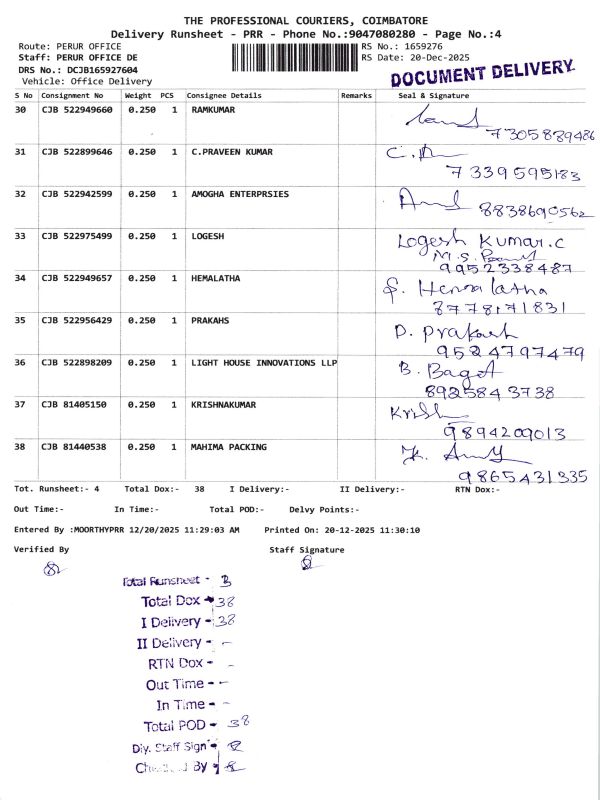 THE PROFESSIONAL COURIERS, COIMBATORE
Delivery Runsheet - PRR - Phone No.:9047080280 - Page No.:4
Route: PERUR OFFICE RS No.: 1659276
Staff: PERUR OFFICE DE RS Date: 20-Dec-2025
DRS No.: DCJB165927604
Vehicle: Office Delivery
DOCUMENT DELIVERY
S No Consignment No Weight PCS Consignee Details Remarks Seal & Signature
30 CJB 522949660 0.250 1 RAMKUMAR
7305839486
31 CJB 522899646 0.250 1 C.PRAVEEN KUMAR
7339595183
32 CJB 522942599 0.250 1 AMOGHA ENTERPRSIES
8838690562
33 CJB 522975499 0.250 1 LOGESH Logesh Kumar.C
9952338487
34 CJB 522949657 0.250 1 HEMALATHA S. Hemalatha
8778171831
35 CJB 522956429 0.250 1 PRAKAHS D. Prakash
9524797479
36 CJB 522898209 0.250 1 LIGHT HOUSE INNOVATIONS LLP B.
8925843738
37 CJB 81405150 0.250 1 KRISHNAKUMAR
9894209013
38 CJB 81440538 0.250 1 MAHIMA PACKING
9865431335
Tot. Runsheet:- 4 Total Dox:- 38 I Delivery:- II Delivery:- RTN Dox:-
Out Time:- In Time:- Total POD:- Delvy Points:-
Entered By :MOORTHYPRR 12/20/2025 11:29:03 AM Printed On: 20-12-2025 11:30:10
Verified By Staff Signature
Total Runsheet - 3
Total Dox - 38
I Delivery - 38
II Delivery - -
RTN Dox - -
Out Time - -
In Time - -
Total POD - 38
Dly. Staff Sign -
Checked By -